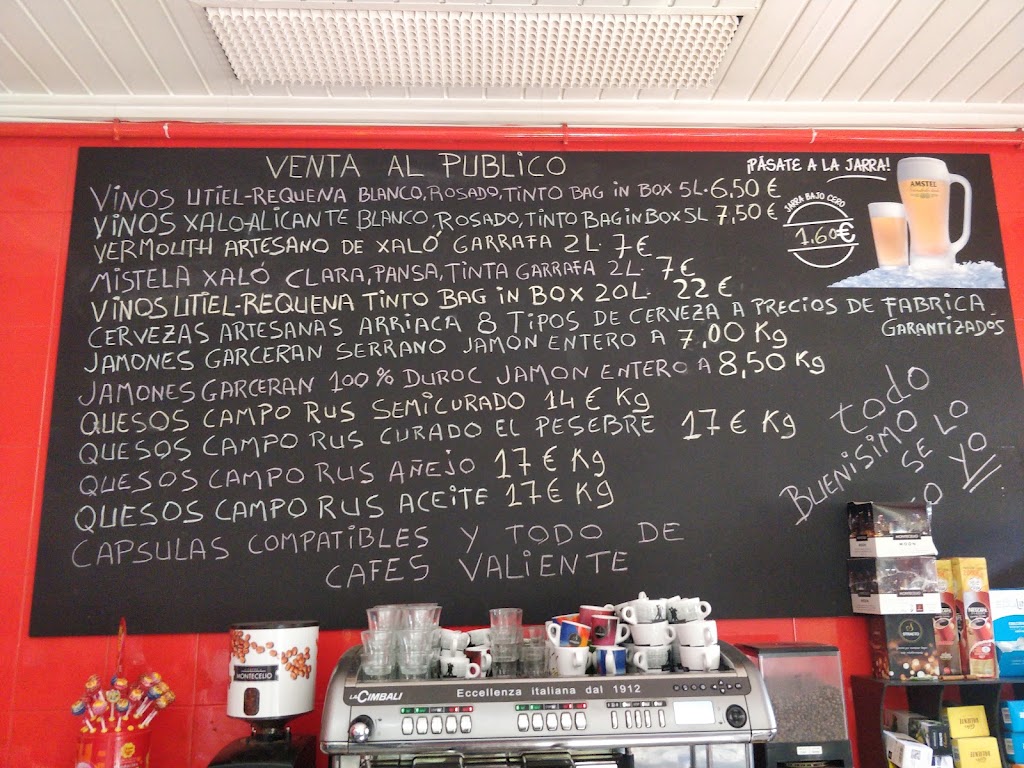 VENTA AL PUBLICO
VINOS UTIEL-REQUENA BLANCO, ROSADO, TINTO BAG in BOX 5L. 6,50 €
VINOS XALO-ALICANTE BLANCO, ROSADO, TINTO BAG in BOX 5L 7,50 €
VERMOUTH ARTESANO DE XALÓ GARRAFA 2L. 7€
MISTELA XALÓ CLARA, PANSA, TINTA GARRAFA 2L. 7€
VINOS UTIEL-REQUENA TINTO BAG in BOX 20L. 22 €
CERVEZAS ARTESANAS ARRIACA 8 TIPOS DE CERVEZA A PRECIOS DE FABRICA
GARANTIZADOS
JAMONES GARCERAN SERRANO JAMON ENTERO A 7,00 Kg
JAMONES GARCERAN 100% DUROC JAMON ENTERO A 8,50 Kg
QUESOS CAMPO RUS SEMICURADO 14 € Kg
QUESOS CAMPO RUS CURADO EL PESEBRE 17 € Kg
QUESOS CAMPO RUS AÑEJO 17 € Kg
QUESOS CAMPO RUS ACEITE 17 € Kg
CAPSULAS COMPATIBLES Y TODO DE
CAFES VALIENTE
¡PÁSATE A LA JARRA!
JARRA BAJO CERO
1.60€
AMSTEL
todo
BUENISIMO
SE LO
YO
MONTECELIO
LA CIMBALI
Eccellenza italiana dal 1912
MONTECELIO
MONTECELIO